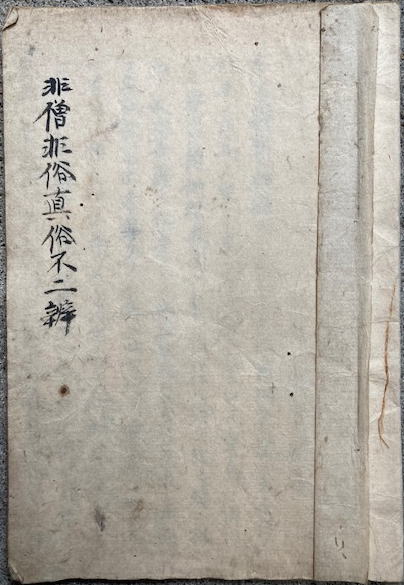 非僧非俗真俗不二辨